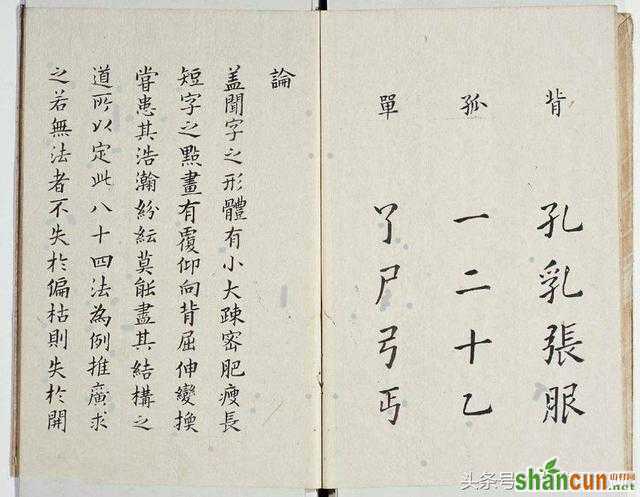 背 孔乳張服
孤 一二十乙
單 尸弓丐
論
盖聞字之形體有小大疎密肥瘦長
短字之點畫有覆仰向背屈伸變換
甞患其浩瀚紛紜莫能盡其結構之
道所以定此八十四法為例推廣求
之若無法者不失於偏枯則失於開
头条号
shancun
.net